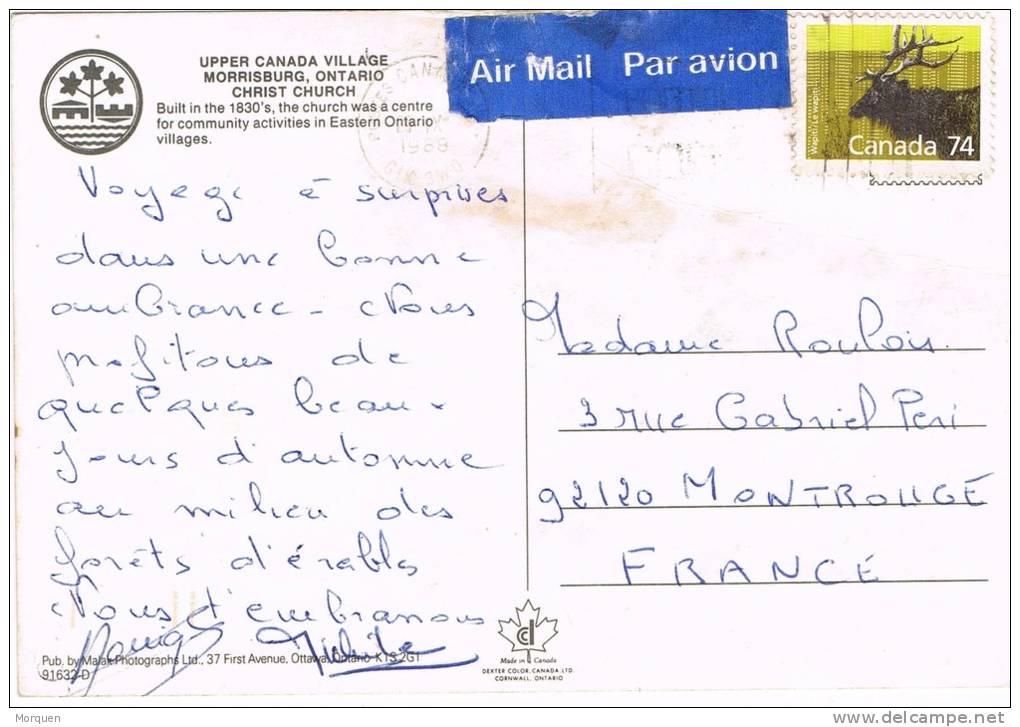 UPPER CANADA VILLAGE
MORRISBURG, ONTARIO
CHRIST CHURCH
Built in the 1830's, the church was a centre
for community activities in Eastern Ontario
villages.
Air Mail Par avion
Wapiti/Le wapiti
Canada 74
1988
Voyage à surprises
dans une bonne
ambiance - Nous
profitons de
quelques beaux
jours d'automne
au milieu des
forêts d'érables
Nous t'embrassons
Madame Roulois
3 rue Gabriel Peri
92120 MONTROUGE
FRANCE
Pub. by Malak Photographs Ltd., 37 First Avenue, Ottawa, Ontario K1S 2G1
91632-D
Made in Canada
DEXTER COLOR, CANADA, LTD.
CORNWALL, ONTARIO
Morquen
delcampe.net